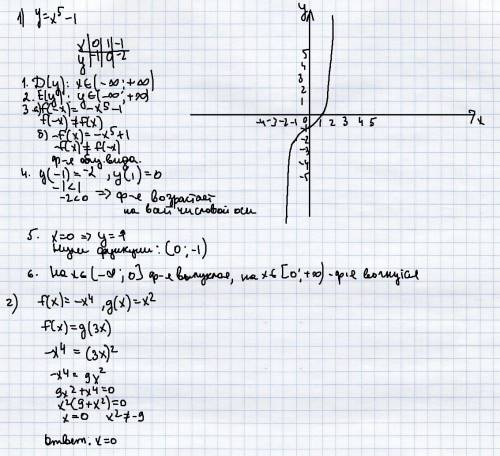 1) y=x⁵-1
x | 0 | 1 | -1
y | -1 | 0 | -2
1. D(y): x∈(-∞;+∞)
2. E(y): y∈(-∞;+∞)
3. а) f(-x)=-x⁵-1
f(-x)≠f(x)
б) -f(x)=-x⁵+1
-f(x)≠f(-x)
ф-я общ. вида.
4. y(-1)=-2, y(1)=0
-1<1
-2<0 => ф-я возрастает
на всей числовой оси
5. x=0 => y=-1
Нули функции: (0;-1)
6. На x∈(-∞;0] ф-я выпуклая, на x∈[0;+∞)-ф-я вогнутая
y
5
4
3
2
1
-4 -3 -2 -1 1 2 3 4 5 x
-1
-2
-3
-4
-5
2) f(x)=-x⁴, g(x)=x²
f(x)=g(3x)
-x⁴=(3x)²
-x⁴=9x²
9x²+x⁴=0
x²(9+x²)=0
x=0 x²≠-9
Ответ: x=0